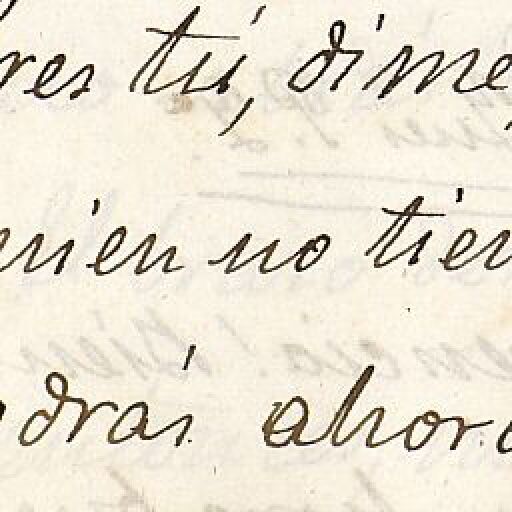 res tú, dime,
uien no tien
odrás ahora